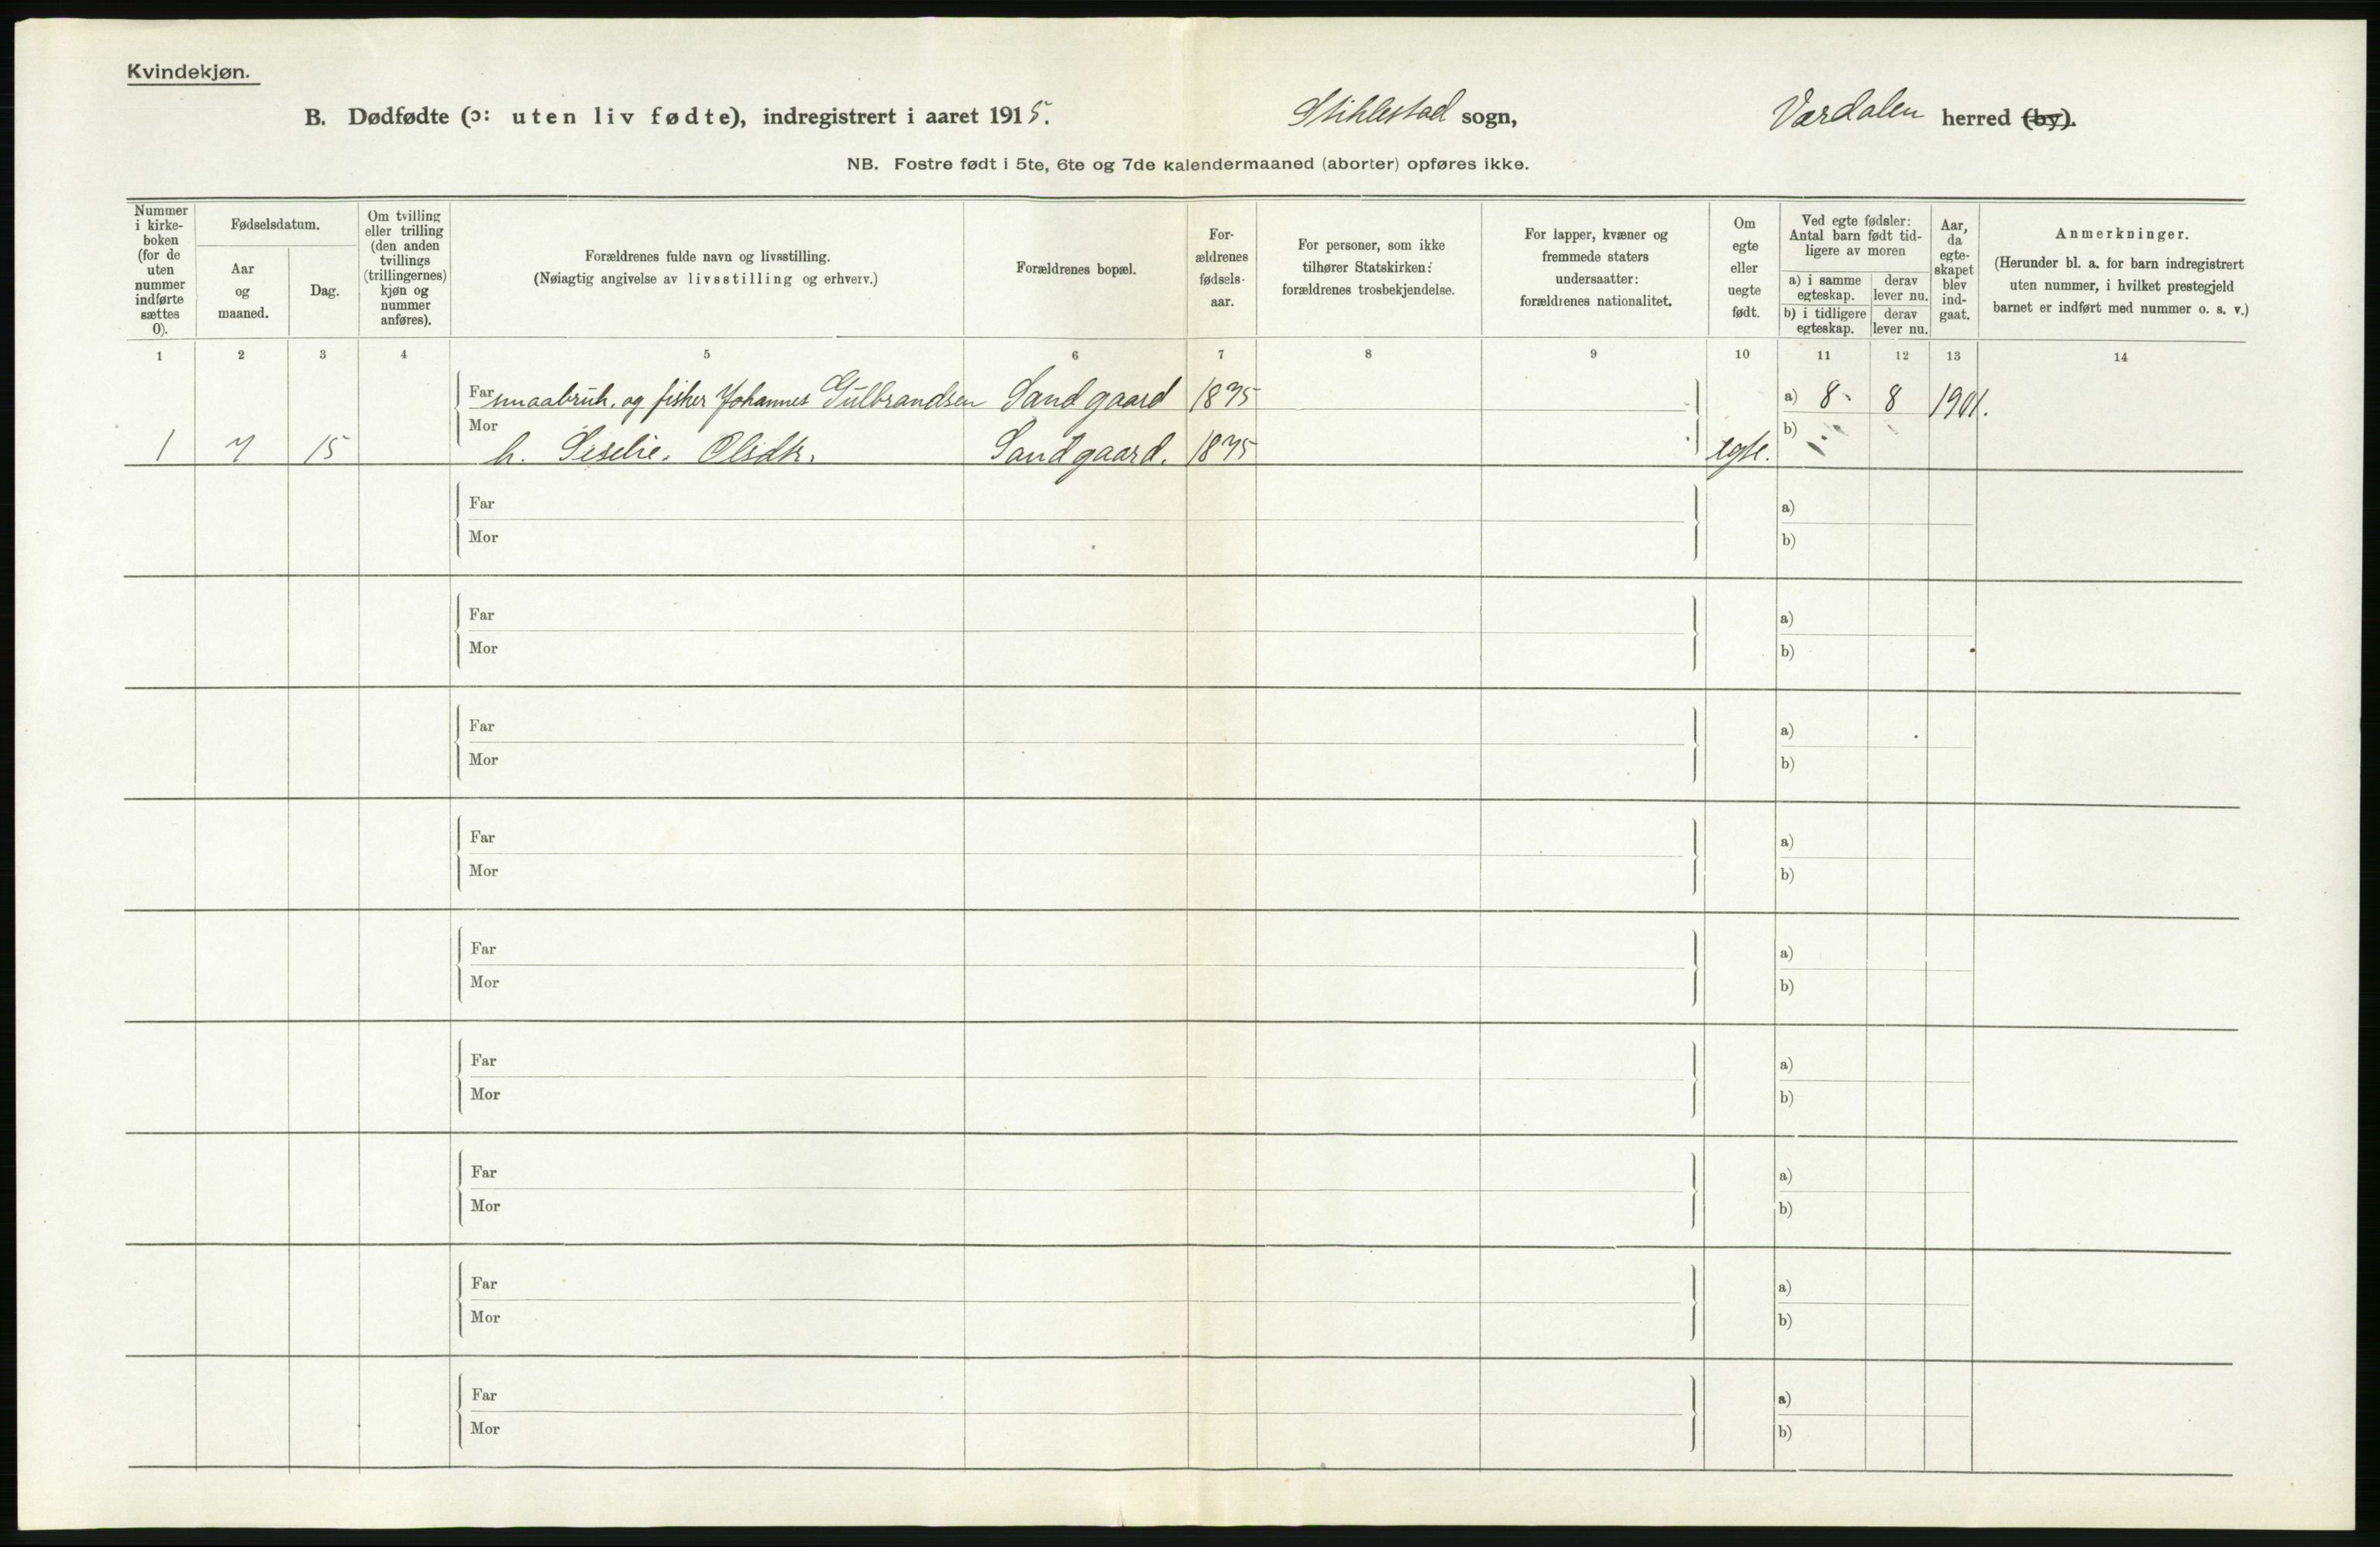 Kvindekjøn.
B. Dødfødte (ɔ: uten liv fødte), indregistrert i aaret 1915. Stiklestad sogn, Værdalen herred (by).
NB. Fostre født i 5te, 6te og 7de kalendermaaned (aborter) opføres ikke.
Nummer i kirke- boken (for de uten nummer indførte sættes 0).
Fødselsdatum.
Aar og maaned.
Dag.
Om tvilling eller trilling (den anden tvillings (trillingernes) kjøn og nummer anføres).
Forældrenes fulde navn og livsstilling.
(Nøiagtig angivelse av livsstilling og erhverv.)
Forældrenes bopæl.
For- ældrenes fødsels- aar.
For personer, som ikke tilhører Statskirken: forældrenes trosbekjendelse.
For lapper, kvæner og fremmede staters undersaatter: forældrenes nationalitet.
Om egte eller uegte født.
Ved egte fødsler: Antal barn født tid- ligere av moren
a) i samme egteskap.
derav lever nu.
b) i tidligere egteskap.
derav lever nu.
Aar, da egte- skapet blev ind- gaat.
Anmerkninger.
(Herunder bl. a. for barn indregistrert uten nummer, i hvilket prestegjeld barnet er indført med nummer o. s. v.)
1 2 3 4 5 6 7 8 9 10 11 12 13 14
Far smaabruk. og fisker Johannes Gulbrandsen Sandgaard 1875 a) 8 8 1901.
Mor b)
1 7 15 h. Seselie. Olsdtr. Sandgaard. 1875 egte.
Far a)
Mor b)
Far a)
Mor b)
Far a)
Mor b)
Far a)
Mor b)
Far a)
Mor b)
Far a)
Mor b)
Far a)
Mor b)
Far a)
Mor b)
Far a)
Mor b)